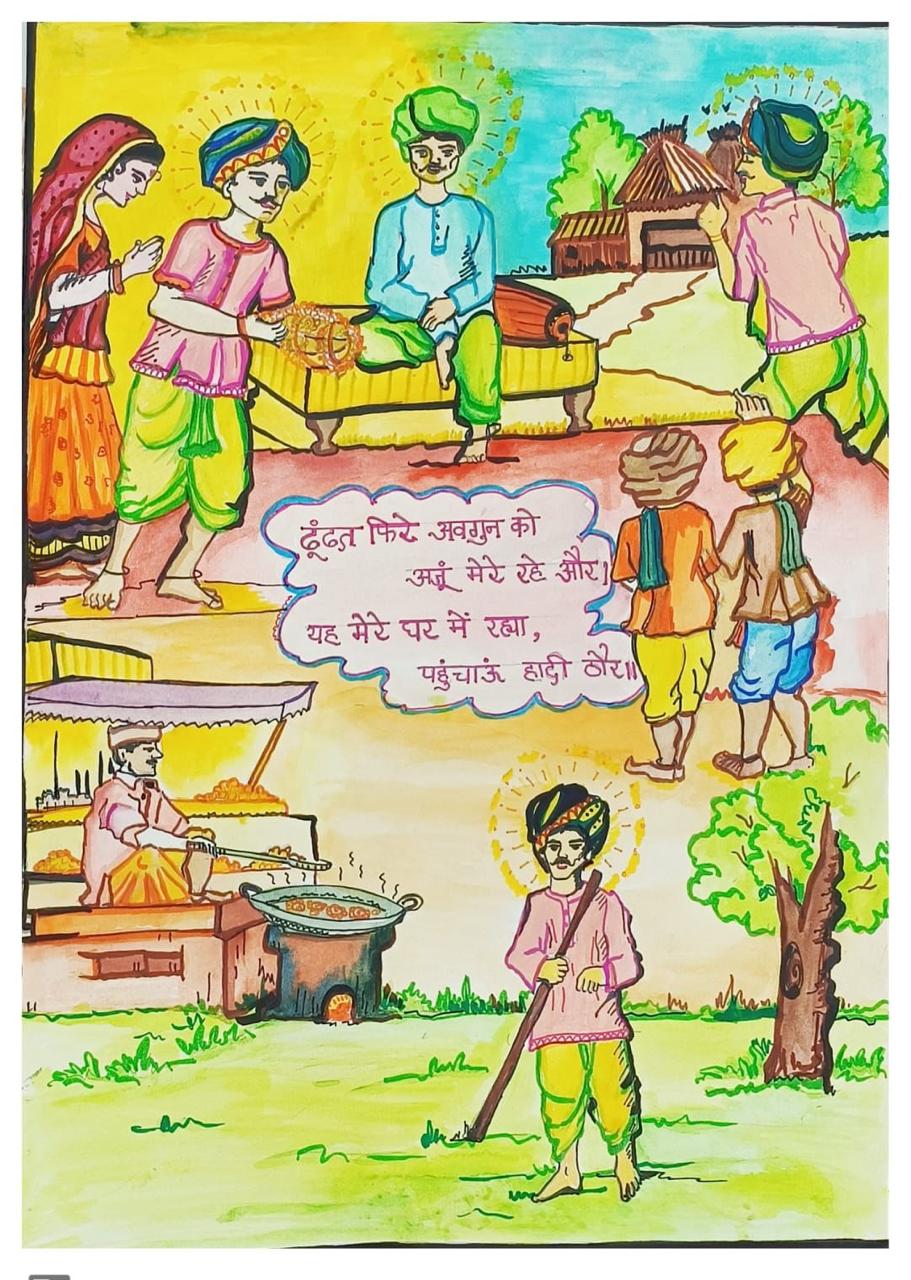 ढूंढत फिरे अवगुन को
अजूं मेरे रहे और।
यह मेरे घर में रह्या,
पहुंचाऊं हादी ठौर॥